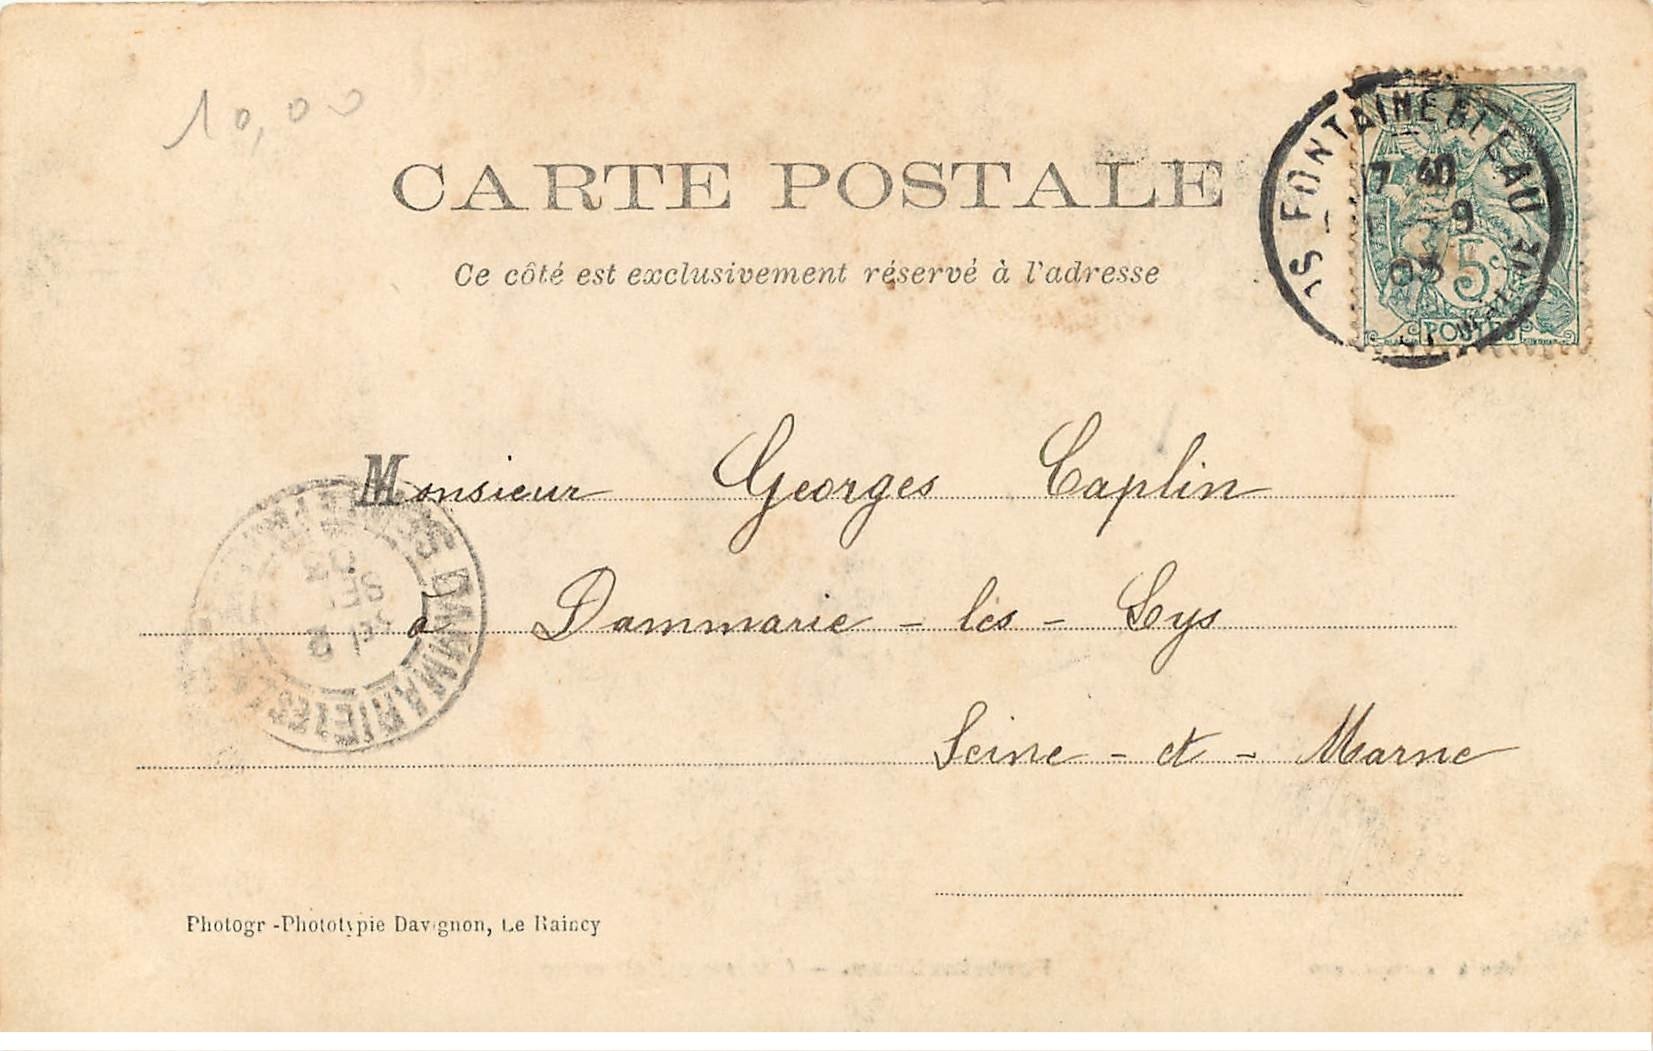 10,00
CARTE POSTALE
Ce côté est exclusivement réservé à l'adresse
FONTAINEBLEAU
17 40
9
03
5c
POSTES
Monsieur Georges Caplin
à Dammarie - lès - Lys
Seine - et - Marne
DAMMARIE LES
SEPT
03
Photogr-Phototypie Davignon, Le Raincy